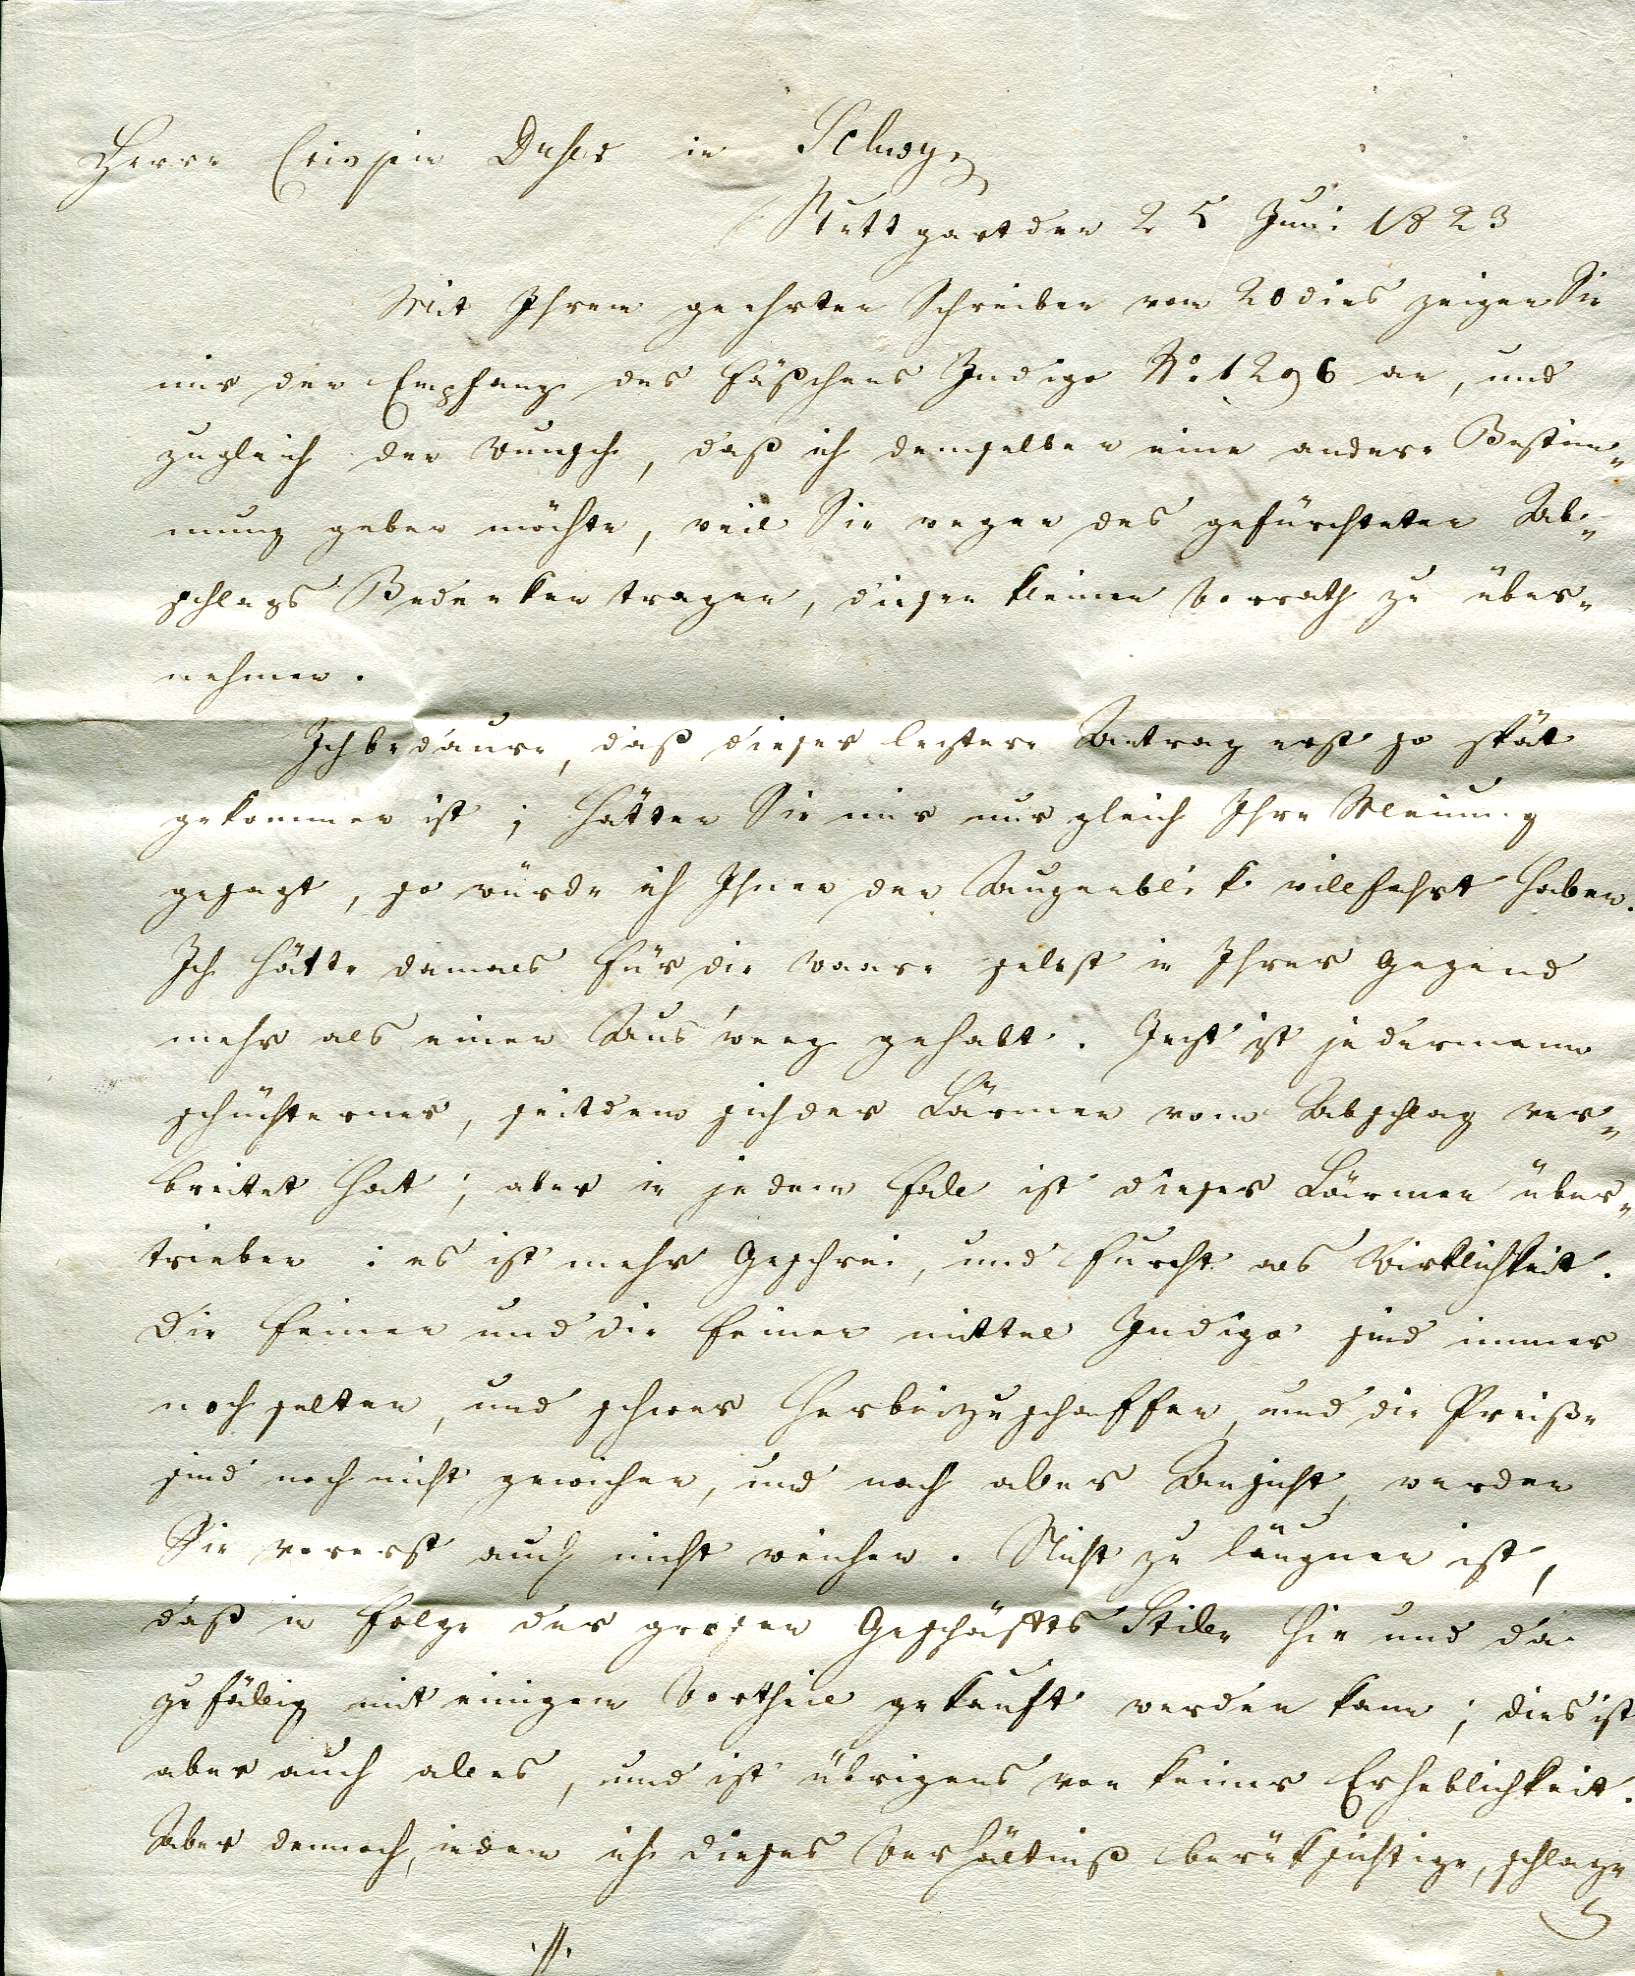 Herrn Crispin Dußer in Schwyz
Stuttgart den 25 Juni 1823
Mit Ihrem geehrten Schreiben vom 20 dies zeigen Sie
mir den Empfang des Fäßchens Indigo No 1296 an, und
zugleich den Wunsch, daß ich demselben eine andere Bestim„
mung geben möchte, weil Sie wegen des gefürchteten Ab„
schlags Bedenken tragen, diesen kleinen Vorrath zu über„
nehmen.
Ich bedaure, daß dieser leztere Antrag erst so spät
gekommen ist; hätten Sie mir nur gleich Ihre Meinung
gesagt, so würde ich Ihnen den Augenblik willfahrt haben.
Ich hätte damals für die Waare selbst in Ihrer Gegend
mehr als einen Ausweeg gehabt. Jezt ist jedermann
schüchterner, seitdem sich der Lärmen vom Abschlag ver„
breitet hat; aber in jedem Falle ist dieser Lärmen über„
trieben: es ist mehr Geschrei, und Furcht als Wirklichkeit.
Die feinen und die feinen mittel Indigo sind immer
noch selten, und schwer herbeizuschaffen, und die Preiße
sind noch nicht gewichen, und nach aller Ansicht, werden
Sie vorerst auch nicht weichen. Nicht zu läugnen ist,
daß in Folge der grosen Geschäfts Stille hie und da
zufällig mit einigem Vortheil gekauft werden kann; dies ist
aber auch alles, und ist übrigens von keiner Erheblichkeit.
Aber dennoch, indem ich dieses Verhältniß berüksichtige, schlage